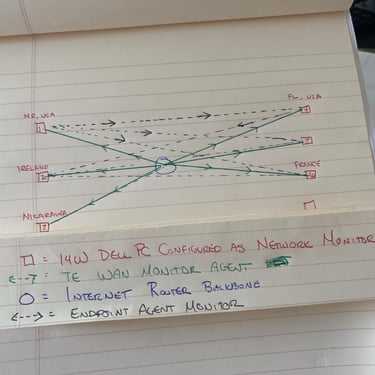 MD, USA
FL, USA
1
IRELAND
2
FRANCE
NICARAGUA
3
= 14W DELL PC CONFIGURED AS NETWORK MONITOR
= TE WAN MONITOR AGENT
= INTERNET ROUTER BACKBONE
= ENDPOINT AGENT MONITOR